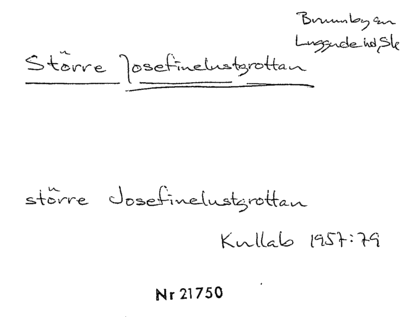 Brunnby sn
Luggude hd, Sk
Större Josefinelustgrottan
större Josefinelustgrottan
Kullab 1957:79
Nr 21750